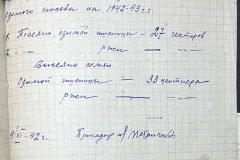 озимого посева на 1942-43 г.г.
Посеяно озимой пшеницы — 27 гектаров
" — " — ржи — " —
Высеяно семян
озимой пшеницы — 33 центнера
ржи — " —
1/VI-42 г. Бригадир